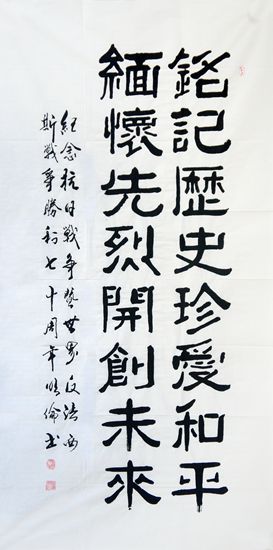 銘記歷史珍愛和平
緬懷先烈開創未來
紀念抗日戰爭暨世界反法西
斯戰爭勝利七十周年